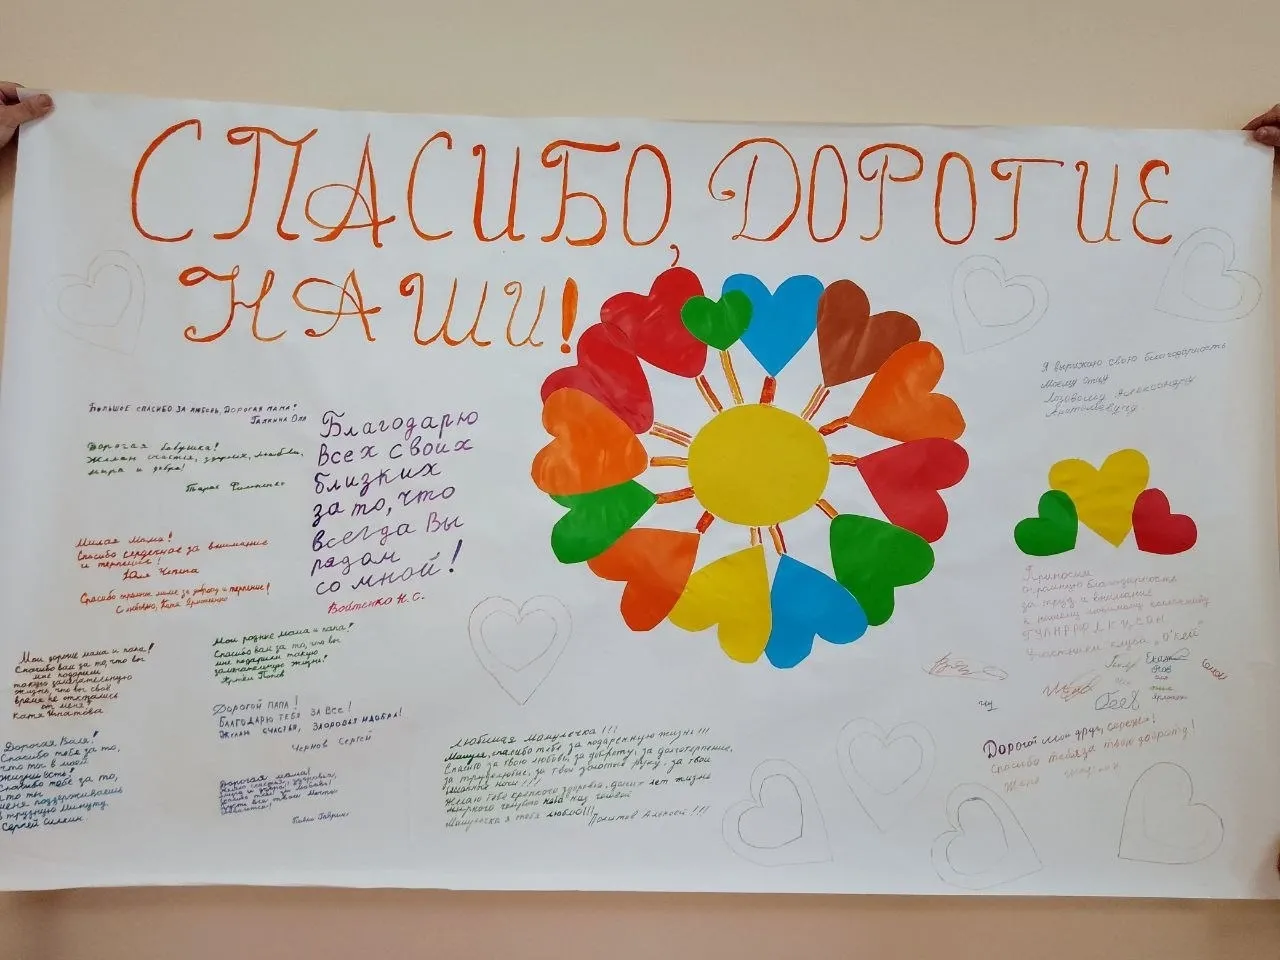 СПАСИБО, ДОРОГИЕ
НАШИ!
Большое спасибо за любовь, дорогая мама!
Галкина Оля
Дорогая бабушка!
Желаю счастья, здоровья, любви,
мира и добра!
Тарас
Милая Мама!
Спасибо сердечное за внимание
и терпение!
Юля Чепига
Спасибо маме за доброту и терпение!
С любовью, Катя
Благодарю
всех своих
близких
за то, что
всегда Вы
рядом
со мной!
Войтенко Н.С.
Мои дорогие мама и папа!
Спасибо вам за то, что вы
мне подарили
такую замечательную
жизнь, что вы своё
время не отказались
от меня!
Катя Игнатова
Мои родные мама и папа!
Спасибо вам за то, что вы
мне подарили такую
замечательную жизнь!
Артём Попов
Дорогой папа!
Благодарю тебя за все!
Желаю счастья, здоровья и добра!
Чернов Сергей
Дорогая Валя!
Спасибо тебе за то,
что ты в моей
жизни есть!
Спасибо тебе за то,
что ты
меня поддерживаешь
в трудную минуту.
Сергей Силкин.
Дорогая мама!
Желаю счастья, здоровья,
мира и добра!
Спасибо тебе за любовь!
Пусть все твои мечты
сбываются!
Любимая Мамулечка!!!
Мамуля, спасибо тебе за подаренную жизнь!!!
Спасибо за твою любовь, за доброту, за долготерпение,
за трудолюбие, за твои золотые руки, за твои
ноги!!!
Желаю тебе крепкого здоровья, долгих лет жизни
мирного голубого неба над головой
Мамулечка я тебя люблю!!!
Политов Алексей!!!
Я выражаю свою благодарность
моему отцу
Лозовому Александру
Анатольевичу
Приносим
огромную благодарность
за труд и внимание
к нашему любимому коллективу
Участники клуба „О'Кей"
Дорогой мой друг, Сережа!
Спасибо тебе за твою доброту!
Женя